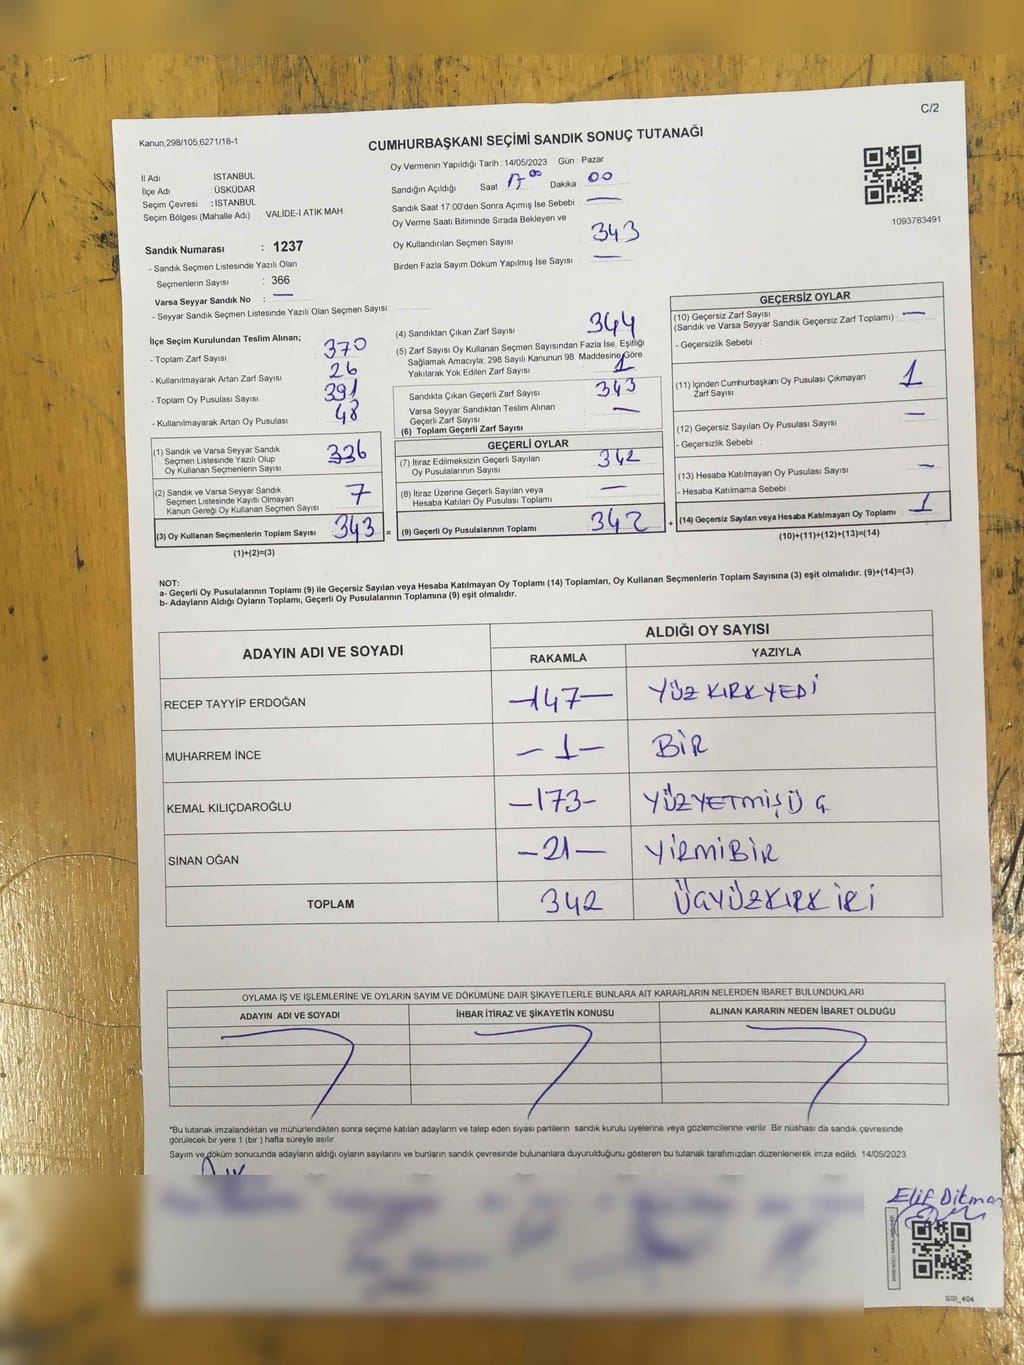 C/2
Kanun,298/105;6271/18-1
CUMHURBAŞKANI SEÇİMİ SANDIK SONUÇ TUTANAĞI
İl Adı İSTANBUL
İlçe Adı : ÜSKÜDAR
Seçim Çevresi : İSTANBUL
Seçim Bölgesi (Mahalle Adı) VALİDE-İ ATİK MAH
Sandık Numarası : 1237
- Sandık Seçmen Listesinde Yazılı Olan
Seçmenlerin Sayısı : 366
Varsa Seyyar Sandık No : —
- Seyyar Sandık Seçmen Listesinde Yazılı Olan Seçmen Sayısı:
Oy Vermenin Yapıldığı Tarih : 14/05/2023 Gün : Pazar
Sandığın Açıldığı Saat : 17 00 Dakika : 00
Sandık Saat 17:00'den Sonra Açımış İse Sebebi : —
Oy Verme Saati Bitiminde Sırada Bekleyen ve
Oy Kullandırılan Seçmen Sayısı : 343
Birden Fazla Sayım Döküm Yapılmış İse Sayısı : —
1093783491
İlçe Seçim Kurulundan Teslim Alınan;
- Toplam Zarf Sayısı : 370
- Kullanılmayarak Artan Zarf Sayısı : 26
- Toplam Oy Pusulası Sayısı : 391
- Kullanılmayarak Artan Oy Pusulası : 48
(1) Sandık ve Varsa Seyyar Sandık
Seçmen Listesinde Yazılı Olup
Oy Kullanan Seçmenlerin Sayısı : 336
(2) Sandık ve Varsa Seyyar Sandık
Seçmen Listesinde Kayıtlı Olmayan
Kanun Gereği Oy Kullanan Seçmen Sayısı : 7
(3) Oy Kullanan Seçmenlerin Toplam Sayısı : 343 =
(1)+(2)=(3)
(4) Sandıktan Çıkan Zarf Sayısı : 344
(5) Zarf Sayısı Oy Kullanan Seçmen Sayısından Fazla İse, Eşitliği
Sağlamak Amacıyla; 298 Sayılı Kanunun 98. Maddesine Göre
Yakılarak Yok Edilen Zarf Sayısı : 1
Sandıkta Çıkan Geçerli Zarf Sayısı : 343
Varsa Seyyar Sandıktan Teslim Alınan
Geçerli Zarf Sayısı : —
(6) Toplam Geçerli Zarf Sayısı
GEÇERLİ OYLAR
(7) İtiraz Edilmeksizin Geçerli Sayılan
Oy Pusulalarının Sayısı : 342
(8) İtiraz Üzerine Geçerli Sayılan veya
Hesaba Katılan Oy Pusulası Toplamı : —
(9) Geçerli Oy Pusulalarının Toplamı : 342 +
GEÇERSİZ OYLAR
(10) Geçersiz Zarf Sayısı
(Sandık ve Varsa Seyyar Sandık Geçersiz Zarf Toplamı) : —
- Geçersizlik Sebebi :
(11) İçinden Cumhurbaşkanı Oy Pusulası Çıkmayan
Zarf Sayısı : 1
(12) Geçersiz Sayılan Oy Pusulası Sayısı : —
- Geçersizlik Sebebi :
(13) Hesaba Katılmayan Oy Pusulası Sayısı : —
- Hesaba Katılmama Sebebi :
(14) Geçersiz Sayılan veya Hesaba Katılmayan Oy Toplamı : 1
(10)+(11)+(12)+(13)=(14)
NOT:
a- Geçerli Oy Pusulalarının Toplamı (9) ile Geçersiz Sayılan veya Hesaba Katılmayan Oy Toplamı (14) Toplamları, Oy Kullanan Seçmenlerin Toplam Sayısına (3) eşit olmalıdır. (9)+(14)=(3)
b- Adayların Aldığı Oyların Toplamı, Geçerli Oy Pusulalarının Toplamına (9) eşit olmalıdır.
ADAYIN ADI VE SOYADI ALDIĞI OY SAYISI
RAKAMLA YAZIYLA
RECEP TAYYİP ERDOĞAN —147— YÜZ KIRK YEDİ
MUHARREM İNCE —1— BİR
KEMAL KILIÇDAROĞLU —173— YÜZYETMİŞ Ü Ç
SİNAN OĞAN —21— YİRMİBİR
TOPLAM 342 ÜÇYÜZKIRK İKİ
OYLAMA İŞ VE İŞLEMLERİNE VE OYLARIN SAYIM VE DÖKÜMÜNE DAİR ŞİKAYETLERLE BUNLARA AİT KARARLARIN NELERDEN İBARET BULUNDUKLARI
ADAYIN ADI VE SOYADI İHBAR İTİRAZ VE ŞİKAYETİN KONUSU ALINAN KARARIN NEDEN İBARET OLDUĞU
*Bu tutanak imzalandıktan ve mühürlendikten sonra seçime katılan adayların ve talep eden siyasi partilerin sandık kurulu üyelerine veya gözlemcilerine verilir. Bir nüshası da sandık çevresinde
görülecek bir yere 1 (bir ) hafta süreyle asılır.
Sayım ve döküm sonucunda adayların aldığı oyların sayılarını ve bunların sandık çevresinde bulunanlara duyurulduğunu gösteren bu tutanak tarafımızdan düzenlenerek imza edildi. 14/05/2023
Elif Dikmen
SSI_404